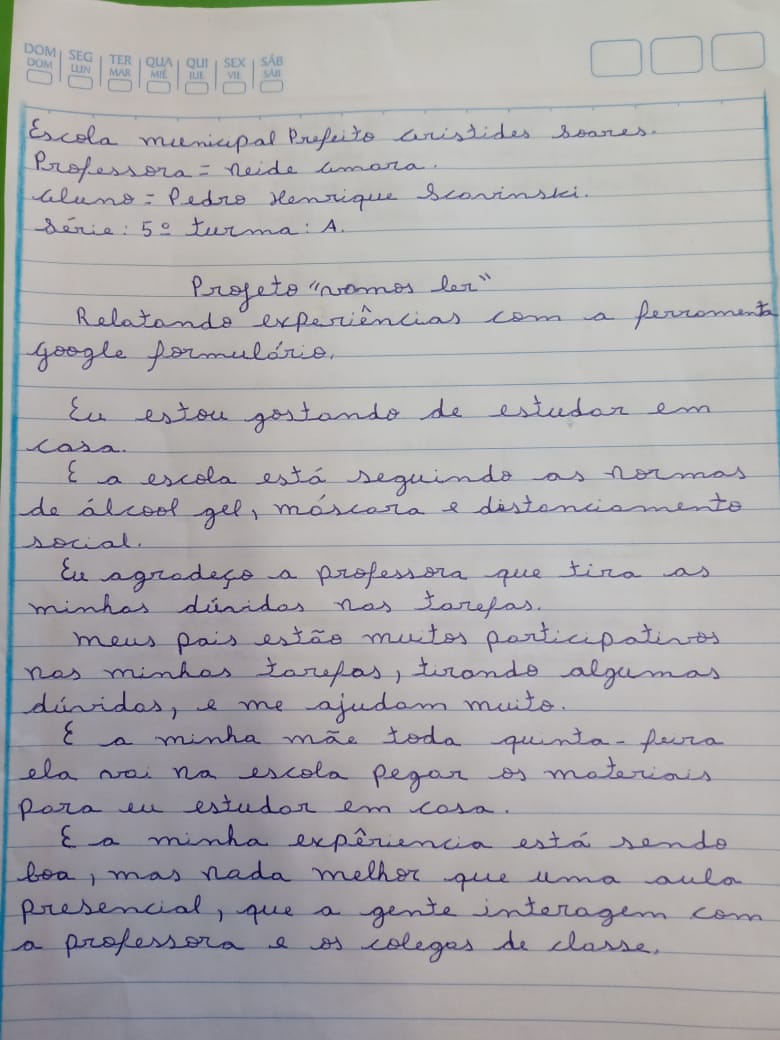 DOM SEG TER QUA QUI SEX SÁB
DOM LUN MAR MIÉ JUE VIE SÁB
Escola municipal Prefeito Aristides Soares.
Professora = Neide Amara.
Aluno = Pedro Henrique Scavinski.
Série: 5º turma: A.
Projeto "vamos ler"
Relatando experiências com a ferramenta
google formulário.
Eu estou gostando de estudar em
casa.
E a escola está seguindo as normas
de álcool gel, máscara e distanciamento
social.
Eu agradeço a professora que tira as
minhas dúvidas nas tarefas.
Meus pais estão muitos participativos
nas minhas tarefas, tirando algumas
dúvidas, e me ajudam muito.
E a minha mãe toda quinta-feira
ela vai na escola pegar os materiais
para eu estudar em casa.
E a minha expêriencia está sendo
boa, mas nada melhor que uma aula
presencial, que a gente interagem com
a professora e os colegas de classe.